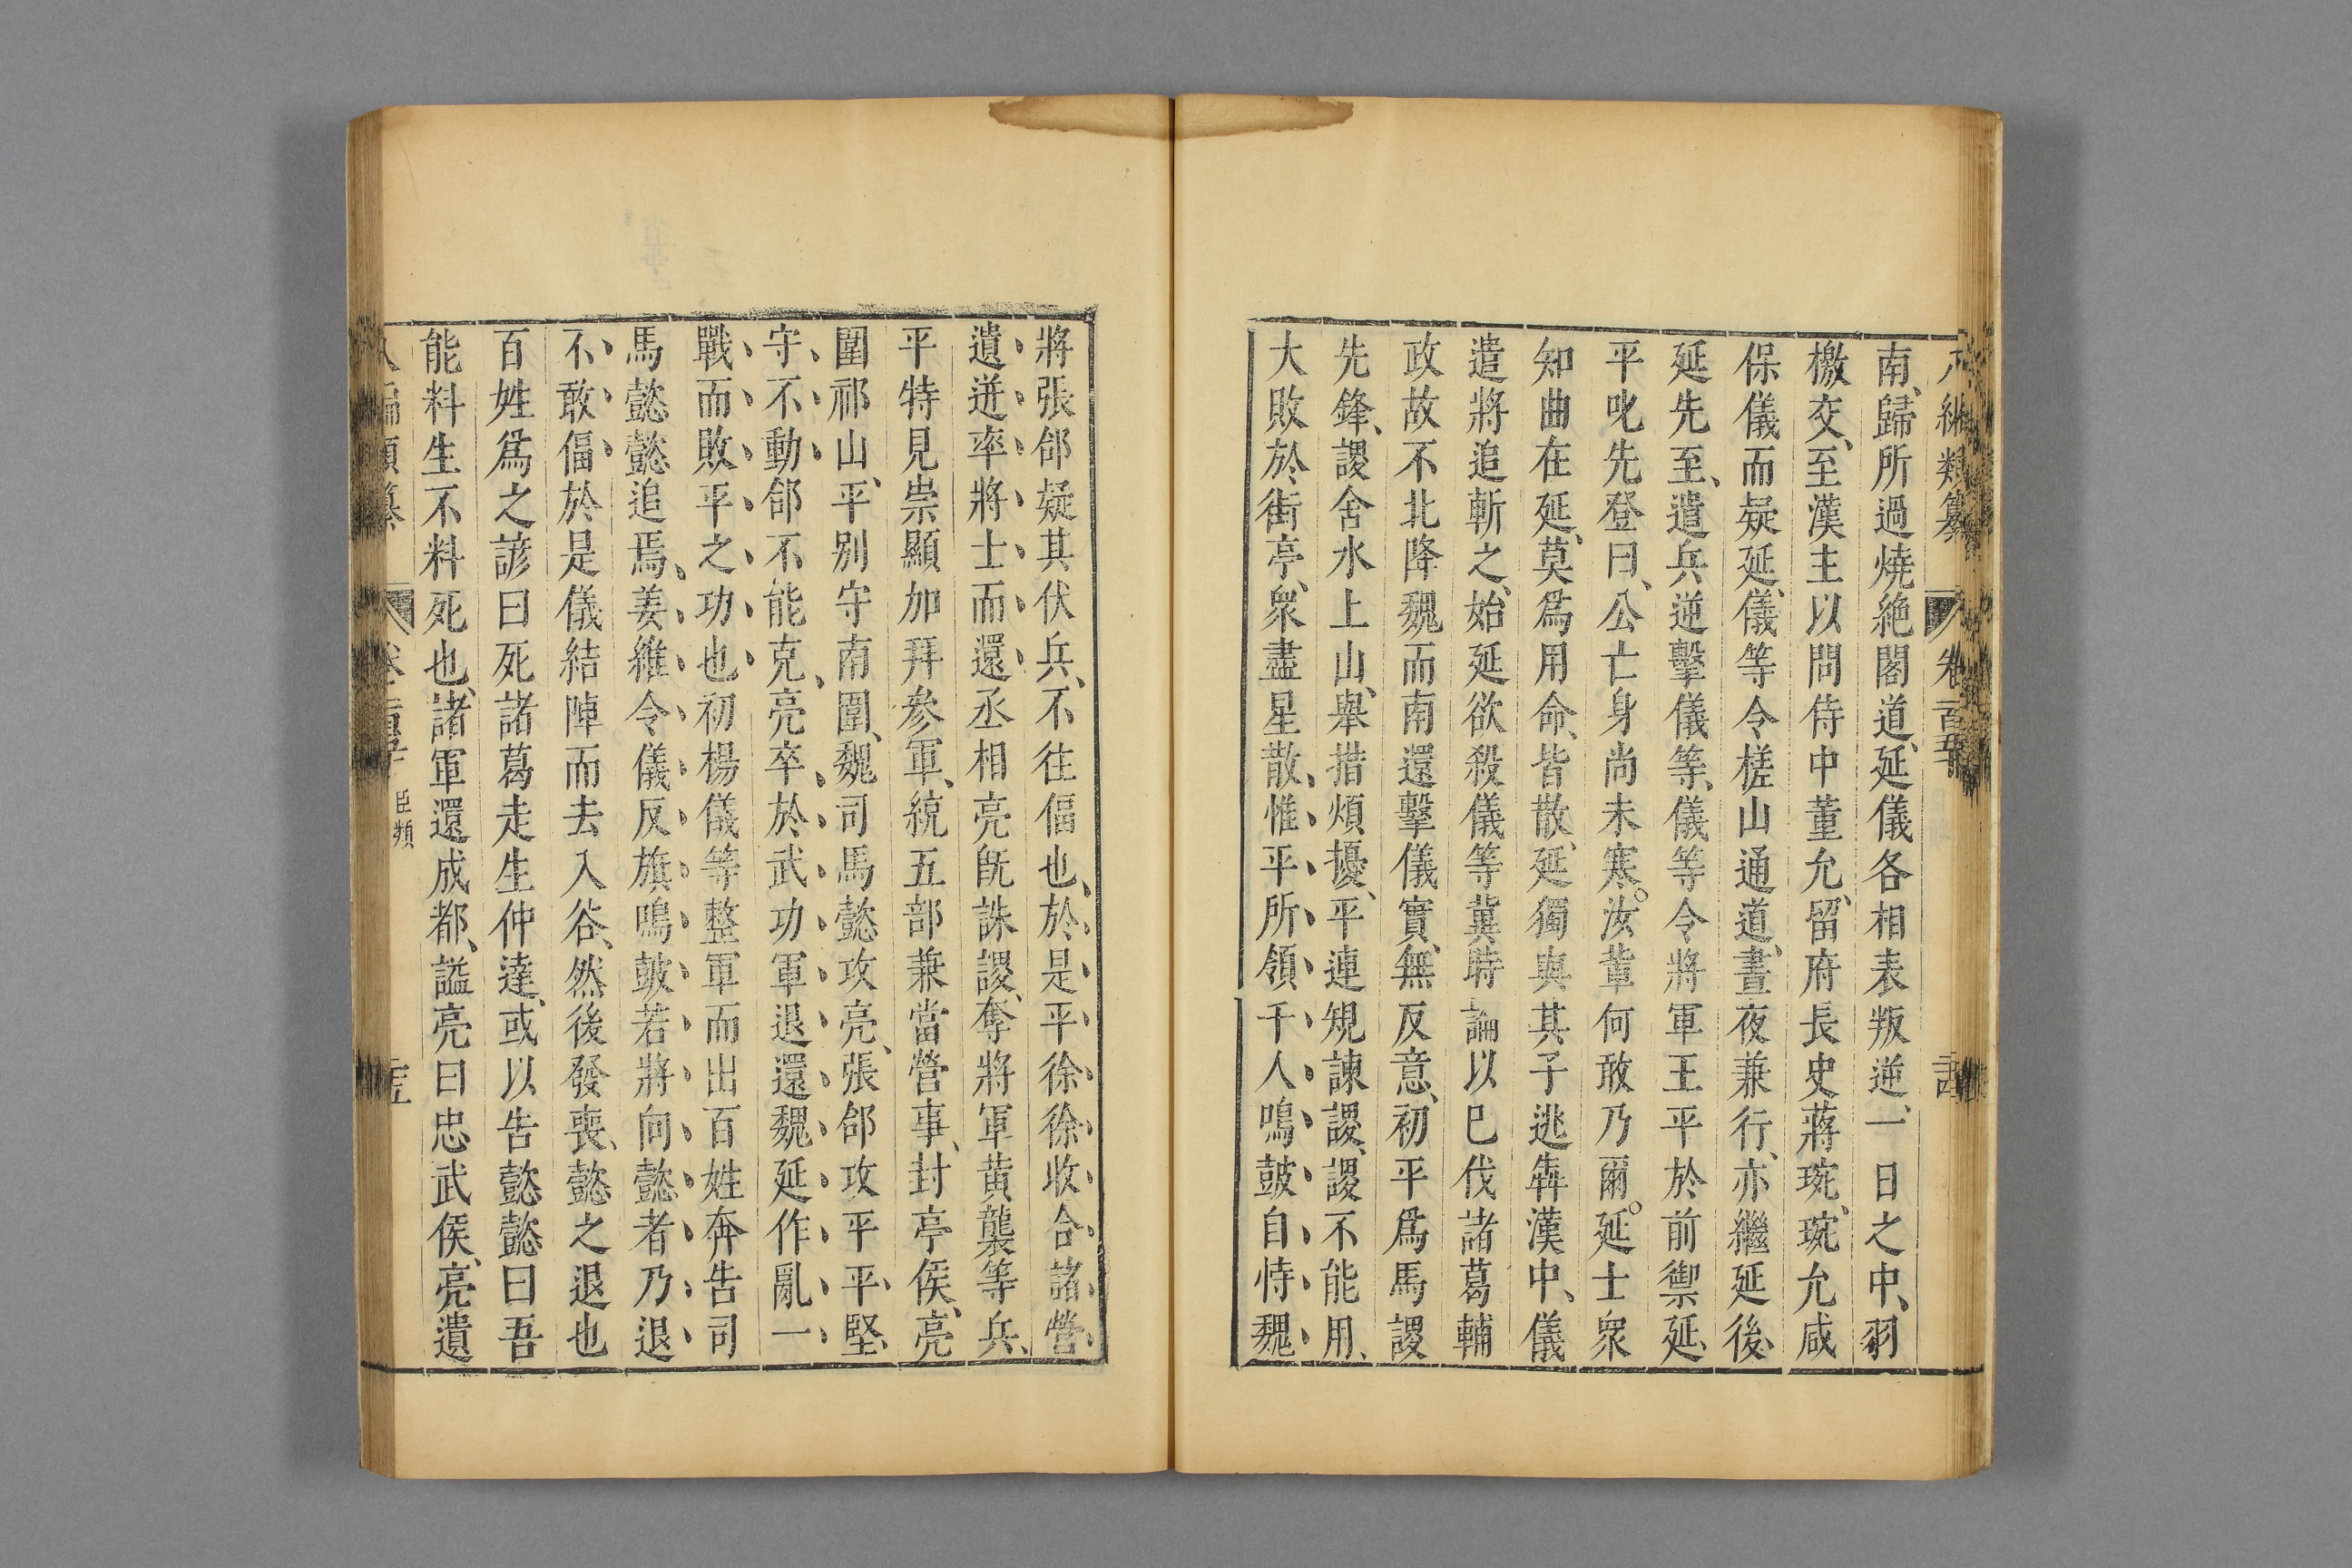 南、歸所過燒絶閣道、延儀各相表叛逆、一日之中、羽
檄交、至漢主以問侍中董允、留府長史蔣琬、琬允咸
保儀而疑延、儀等令槎山通道、晝夜兼行、亦繼延後、
延先至、遣兵逆擊儀等、儀等令將軍王平於前禦延、
平叱先登曰、公亡身尚未寒。汝輩何敢乃爾。延士衆
知曲在延、莫爲用命、皆散、延獨與其子逃犇漢中、儀
遣將追斬之、始延欲殺儀等冀時論以巳伐諸葛輔
政故不北降魏而南還擊儀實、無反意、初平爲馬謖
先鋒、謖舍水上山、舉措煩擾、平連規諫謖、謖不能用、
大敗於街亭、衆盡星散、惟平所領千人鳴鼓自恃魏
將張郃疑其伏兵、不往偪也、於是平徐徐收合諸營
遺迸率將士而還丞相亮旣誅謖、奪將軍黄襲等兵、
平特見崇顯加拜參軍、統五部兼當營事、封亭侯、亮
圍祁山、平别守南圍、魏司馬懿攻亮、張郃攻平平、堅
守不動郃不能克、亮卒、於武功軍退還魏延作亂一
戰而敗平之功也初楊儀等整軍而出百姓奔告司
馬懿懿追焉、姜維令儀反旗鳴鼓若將向懿者乃退
不敢偪於是儀結陣而去入谷、然後發喪、懿之退也
百姓爲之諺曰死諸葛走生仲達、或以告懿懿曰吾
能料生不料死也、諸軍還成都、諡亮曰忠武侯、亮遺
臣類